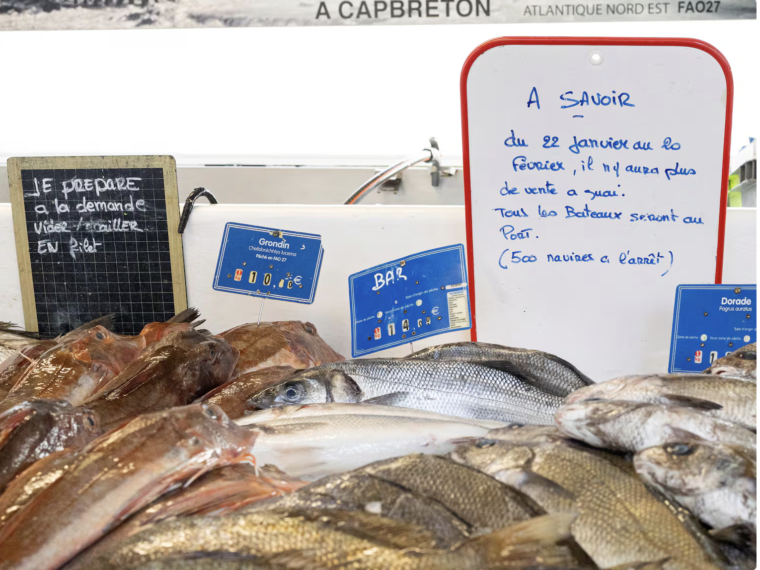 A CAPBRETON ATLANTIQUE NORD EST FAO27
A SAVOIR
du 22 Janvier au 20
Février, il n'y aura plus
de vente a quai.
Tous les Bateaux seront au
Port.
(500 navires a l'arrêt)
JE PREPARE
a la demande
Vider / écailler
EN filet
Grondin
Pêché en FAO 27
10, €
BAR
14, €
Dorade
Pagrus auratus
1